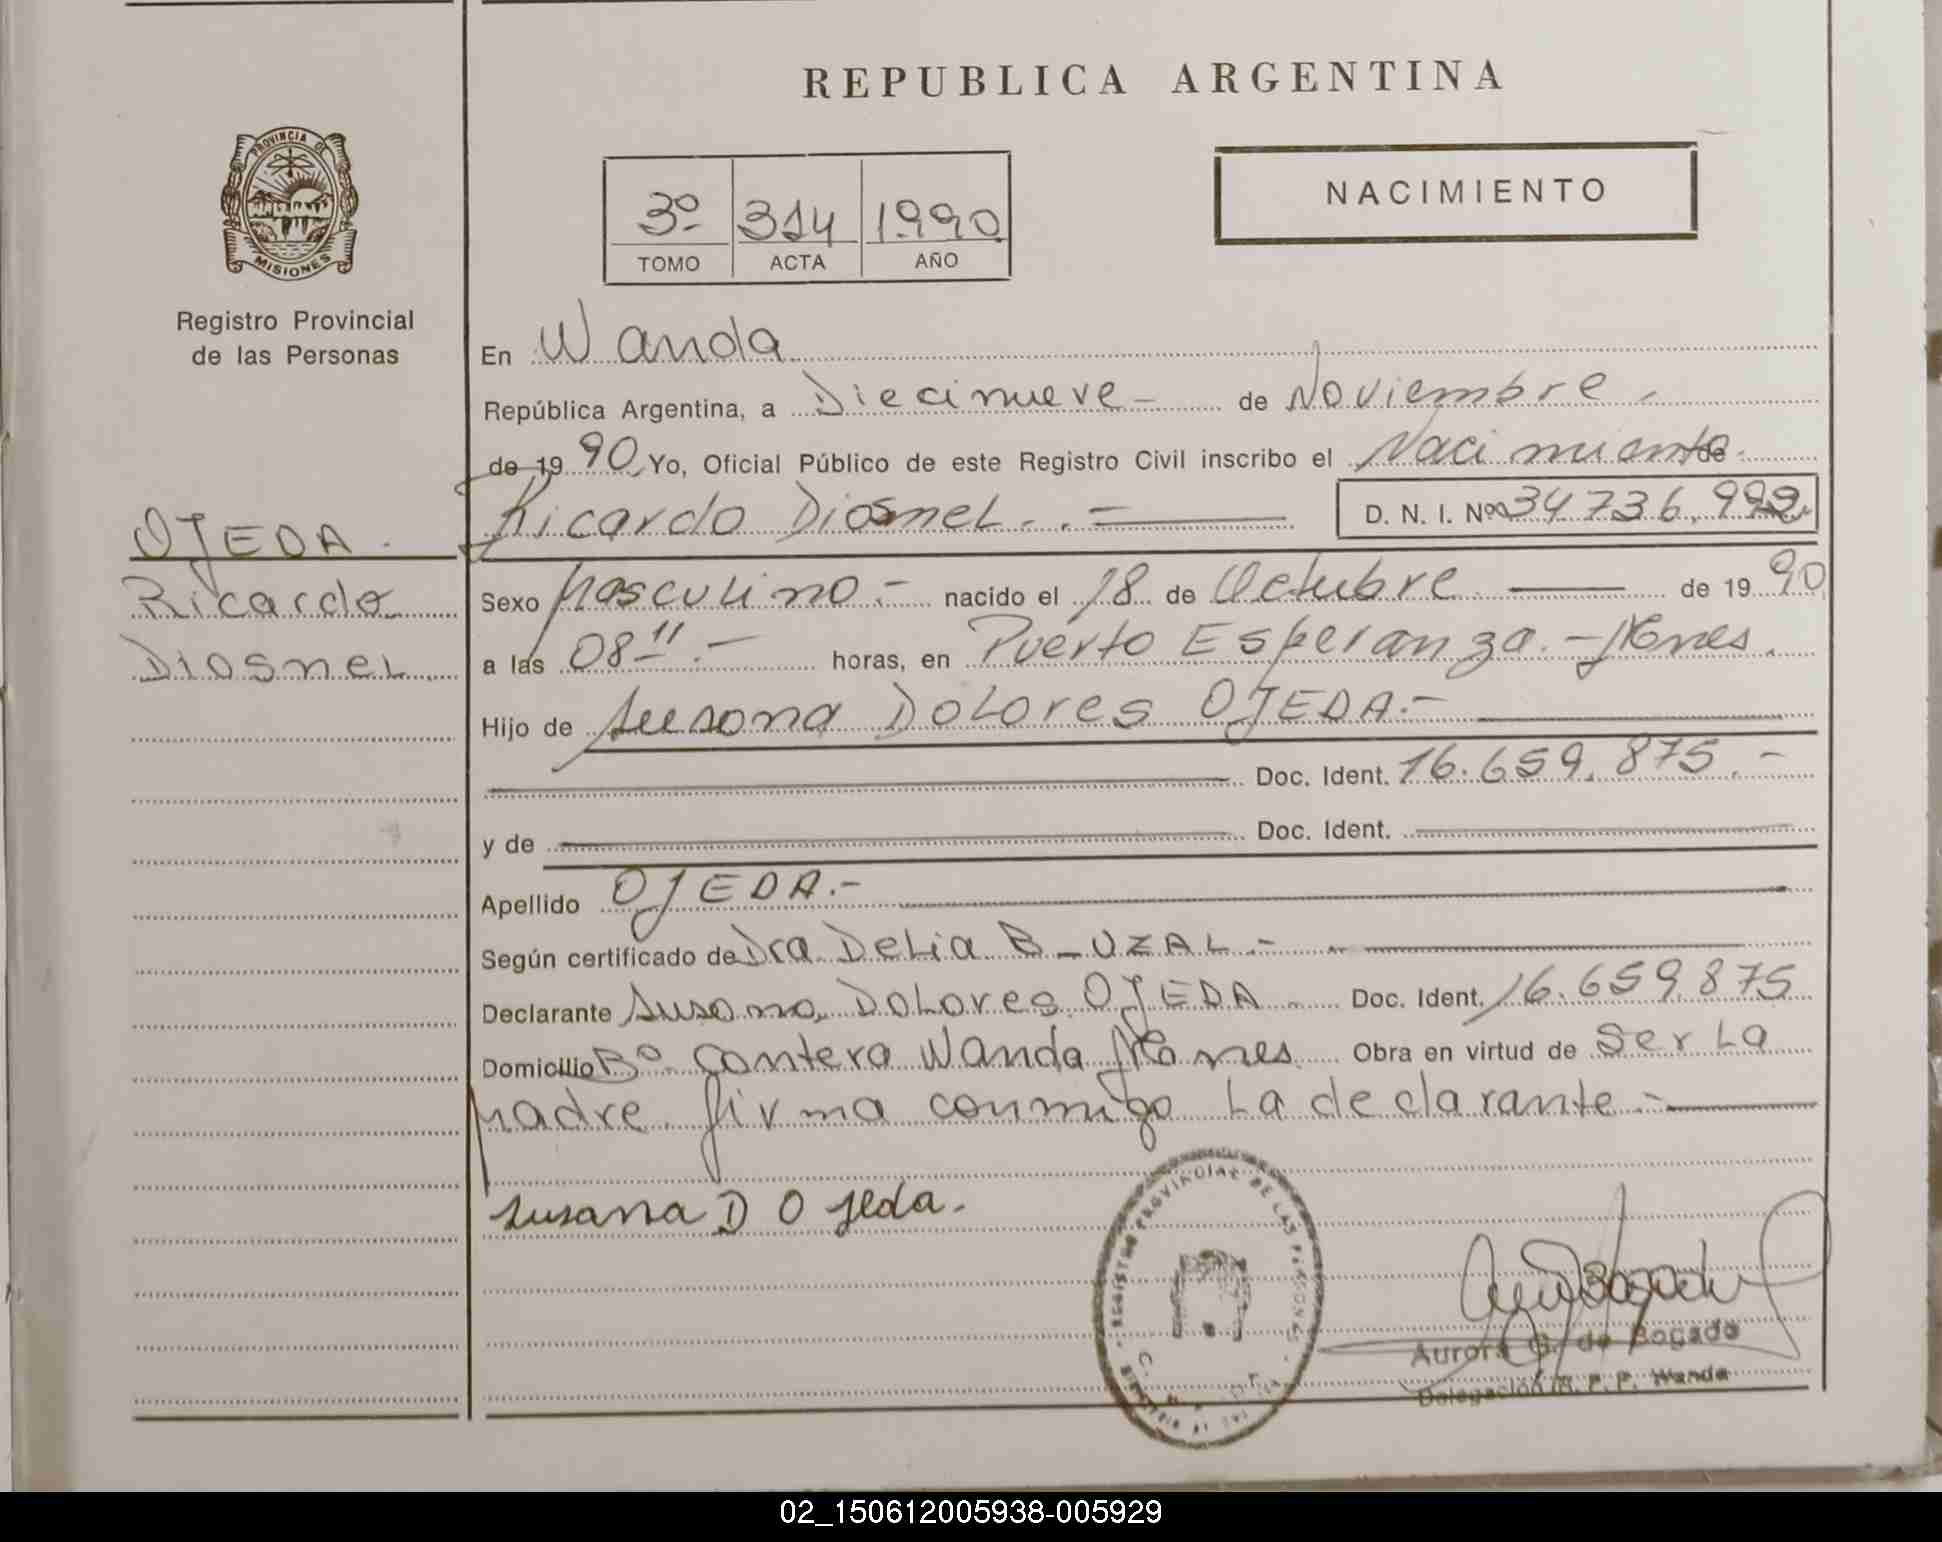 REPUBLICA ARGENTINA
PROVINCIA DE
MISIONES
Registro Provincial
de las Personas
3º 314 1990
TOMO ACTA AÑO
NACIMIENTO
En Wanda
República Argentina, a Diecinueve- de Noviembre.
de 1990 Yo, Oficial Público de este Registro Civil inscribo el Nacimiento de
Ricardo Diosnel..- D. N. I. Nº 34736.992
OJEDA.
Ricardo
Diosnel
Sexo Masculino.- nacido el 18 de Octubre de 1990
a las 08"..- horas, en Puerto Esperanza.-Mnes.
Hijo de Susana Dolores OJEDA.-
Doc. Ident. 16.659.875.-
y de Doc. Ident.
Apellido OJEDA.-
Según certificado de Dra Delia B_UZAL.-
Declarante Susana Dolores OJEDA Doc. Ident. 16.659875
Domicilio Bº Cantera Wanda Mnes. Obra en virtud de Ser La
Madre firma conmigo La declarante.-
Susana D Ojeda.
REGISTRO PROVINCIAL DE LAS PERSONAS
Aurora G. de Bogado
Delegación R. P. P. Wanda
02_150612005938-005929